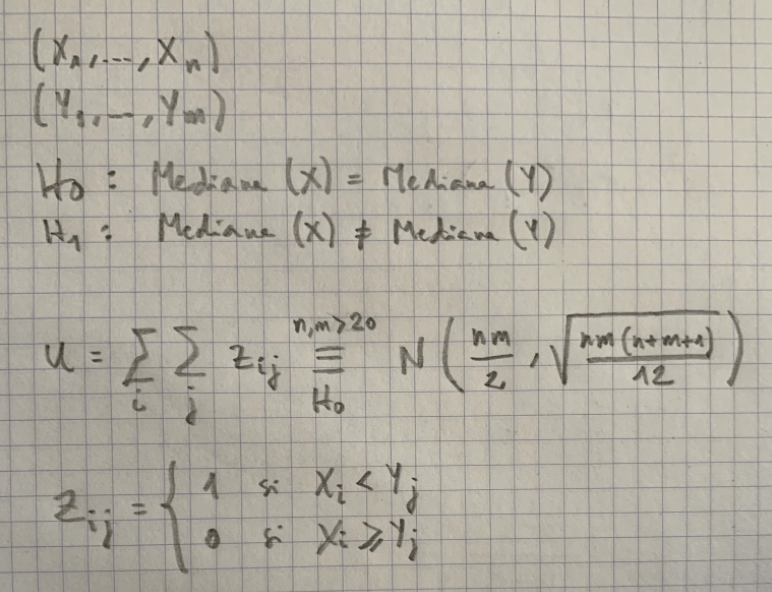 (X₁,...,Xₙ)
(Y₁,...,Yₘ)
H₀ : Mediana (X) = Mediana (Y)
H₁ : Mediana (X) ≠ Mediana (Y)
U = ∑ᵢ ∑ⱼ Zᵢⱼ ≡ (n,m>20, H₀) N( nm/2 , √(nm(n+m+1)/12) )
Zᵢⱼ = { 1 si Xᵢ < Yⱼ
0 si Xᵢ ⩾ Yⱼ